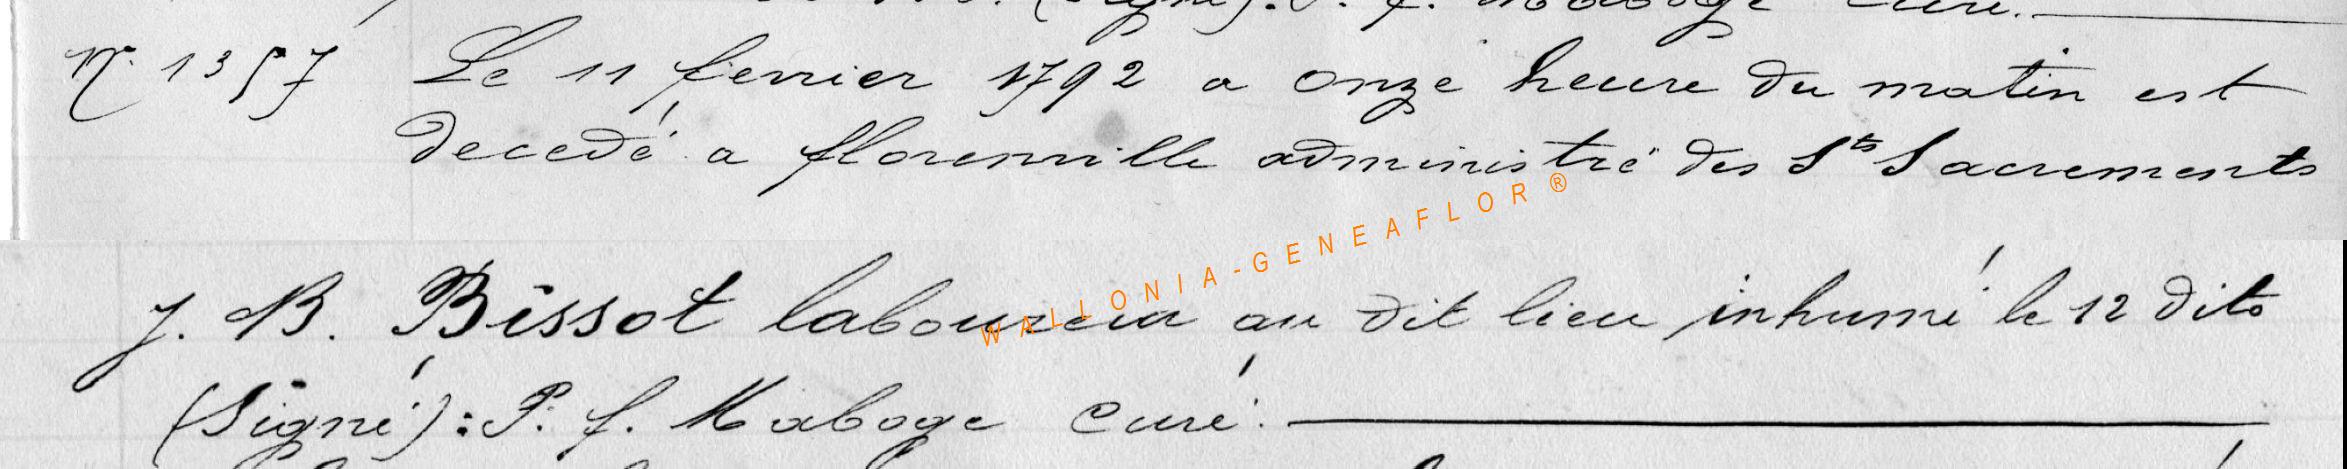 (Signé): P. f. Maboge Curé.
N° 1357 Le 11 fevrier 1792 a onze heure du matin est
decedé a florenville administré des Sts Sacrements
WALLONIA-GENEAFLOR ®
J. B. Bissot laboureur au dit lieu inhumé le 12 dito
(Signé): P. f. Maboge Curé.